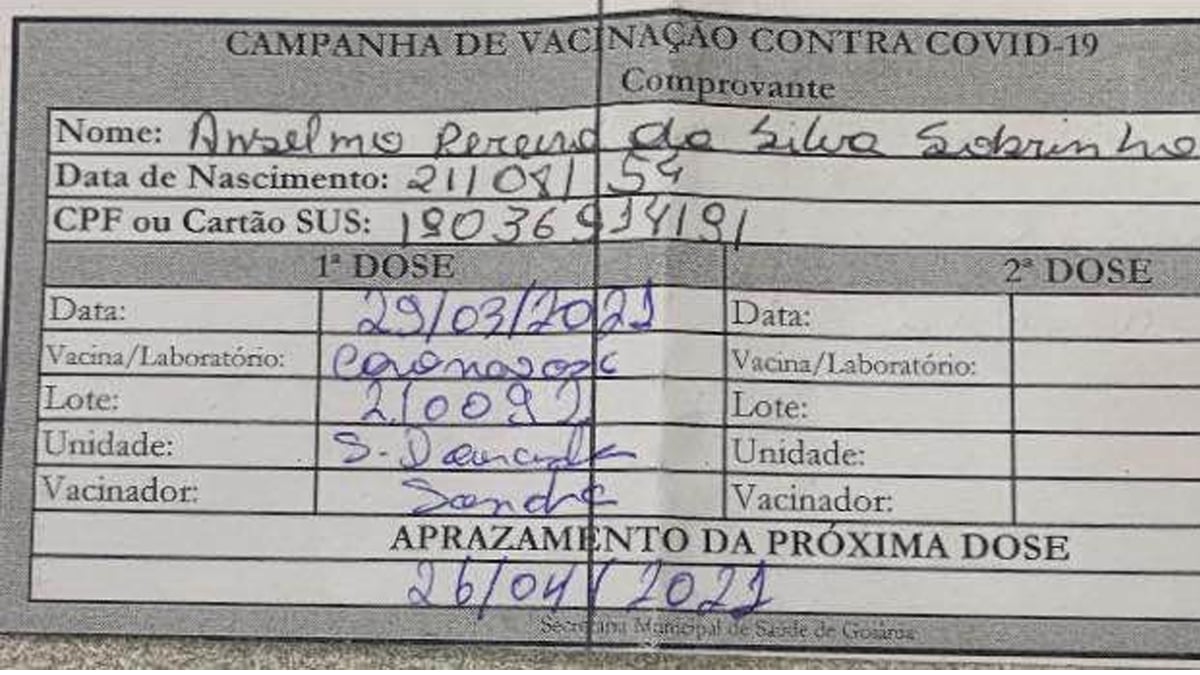 CAMPANHA DE VACINAÇÃO CONTRA COVID-19
Comprovante
Nome: Anselmo Pereira da Silva Sobrinho
Data de Nascimento: 21/08/54
CPF ou Cartão SUS: 19036914191
1ª DOSE 2ª DOSE
Data: 29/03/2021 Data:
Vacina/Laboratório: Coronavac Vacina/Laboratório:
Lote: 210092 Lote:
Unidade: S. Unidade:
Vacinador: Sandra Vacinador:
APRAZAMENTO DA PRÓXIMA DOSE
26/04/2021
Secretaria Municipal de Saúde de Goiânia